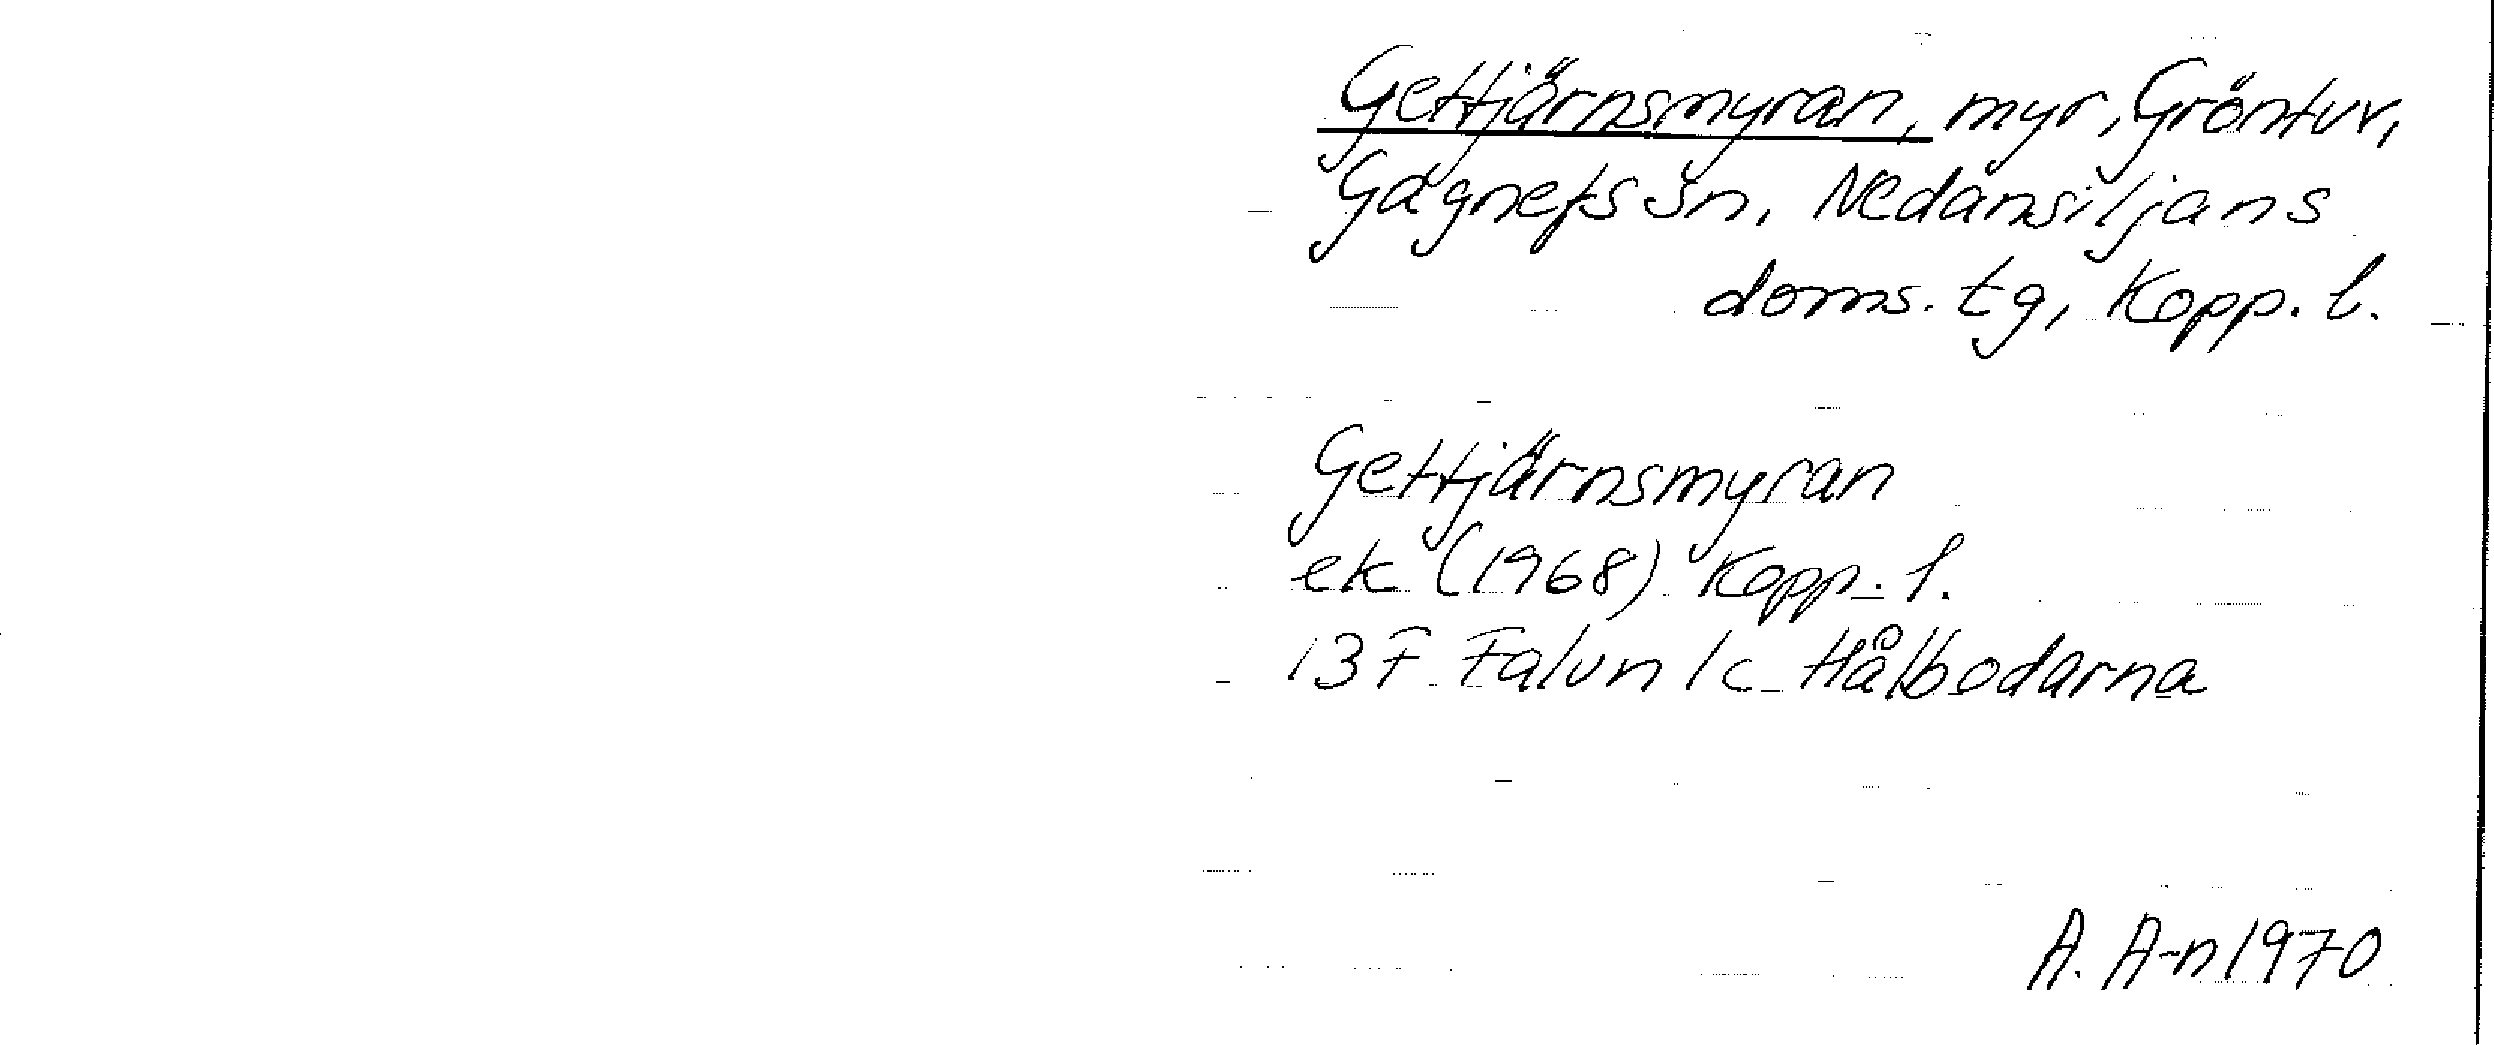 Gettjärnsmyran, myr, Gröntuv,
Gagnefs sn, Nedansiljans
doms. tg, Kopp. l.
Gettjärnsmyran
ek (1968) Kopp. l.
13F Falun 1c Hålbodarna
A. A-n 1970